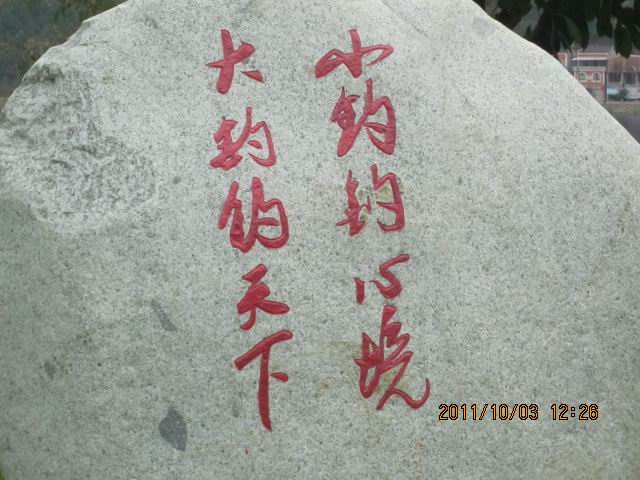 小钓钓心境
大钓钓天下
2011/10/03 12:26